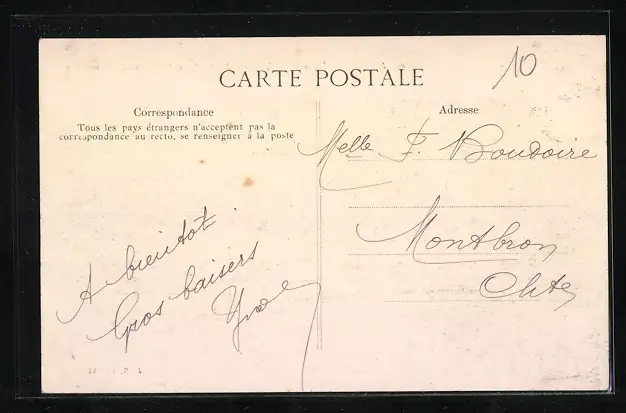 10
CARTE POSTALE
Correspondance
Tous les pays étrangers n'acceptent pas la
correspondance au recto, se renseigner à la poste
Adresse
Melle F. Boudoire
Montbron
Chte
A bientot.
Gros baisers